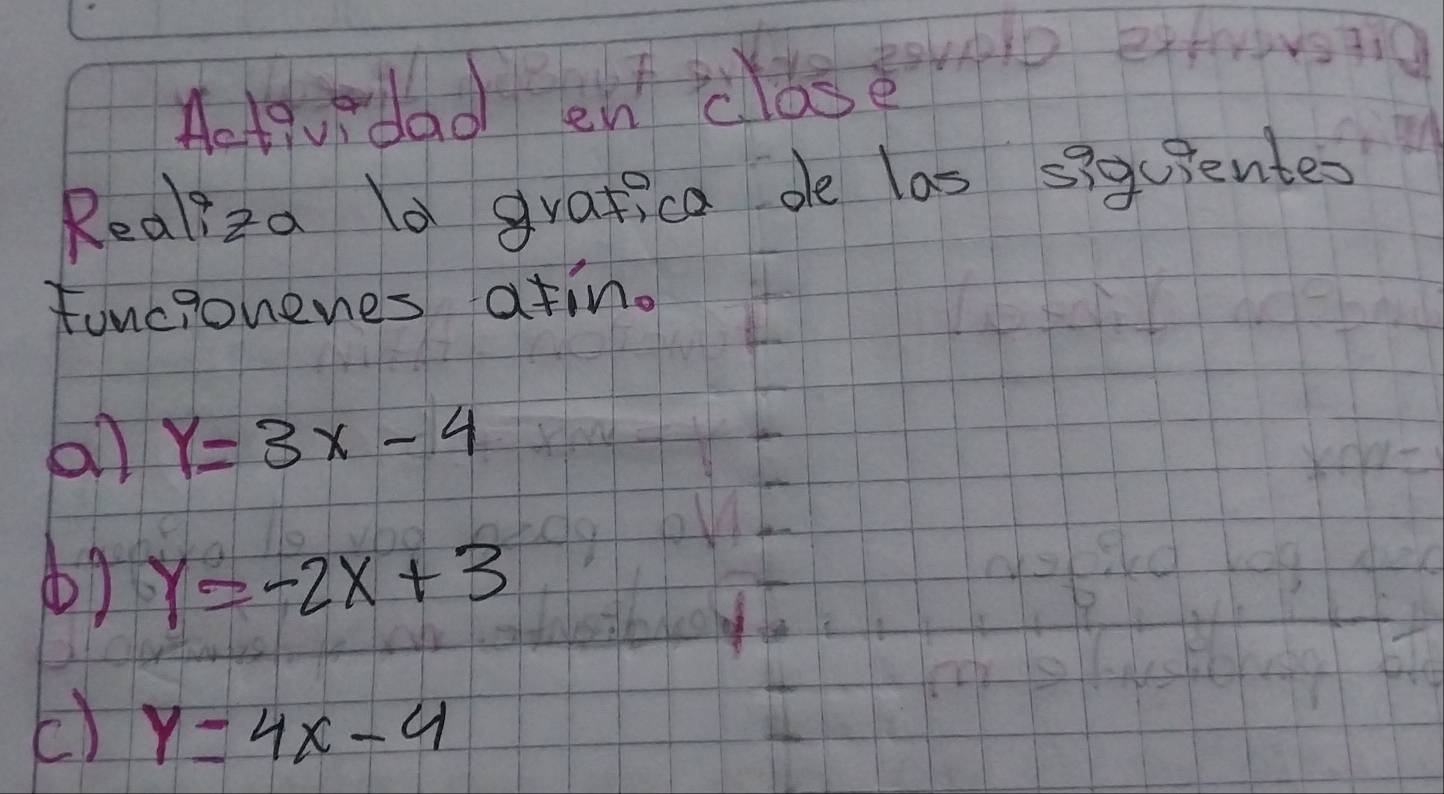 Actividad en clase
Realiza la grafica de las siguientes
funcionenes afín.
a) Y = 3x - 4
b) Y = -2x + 3
c) Y = 4x - 4